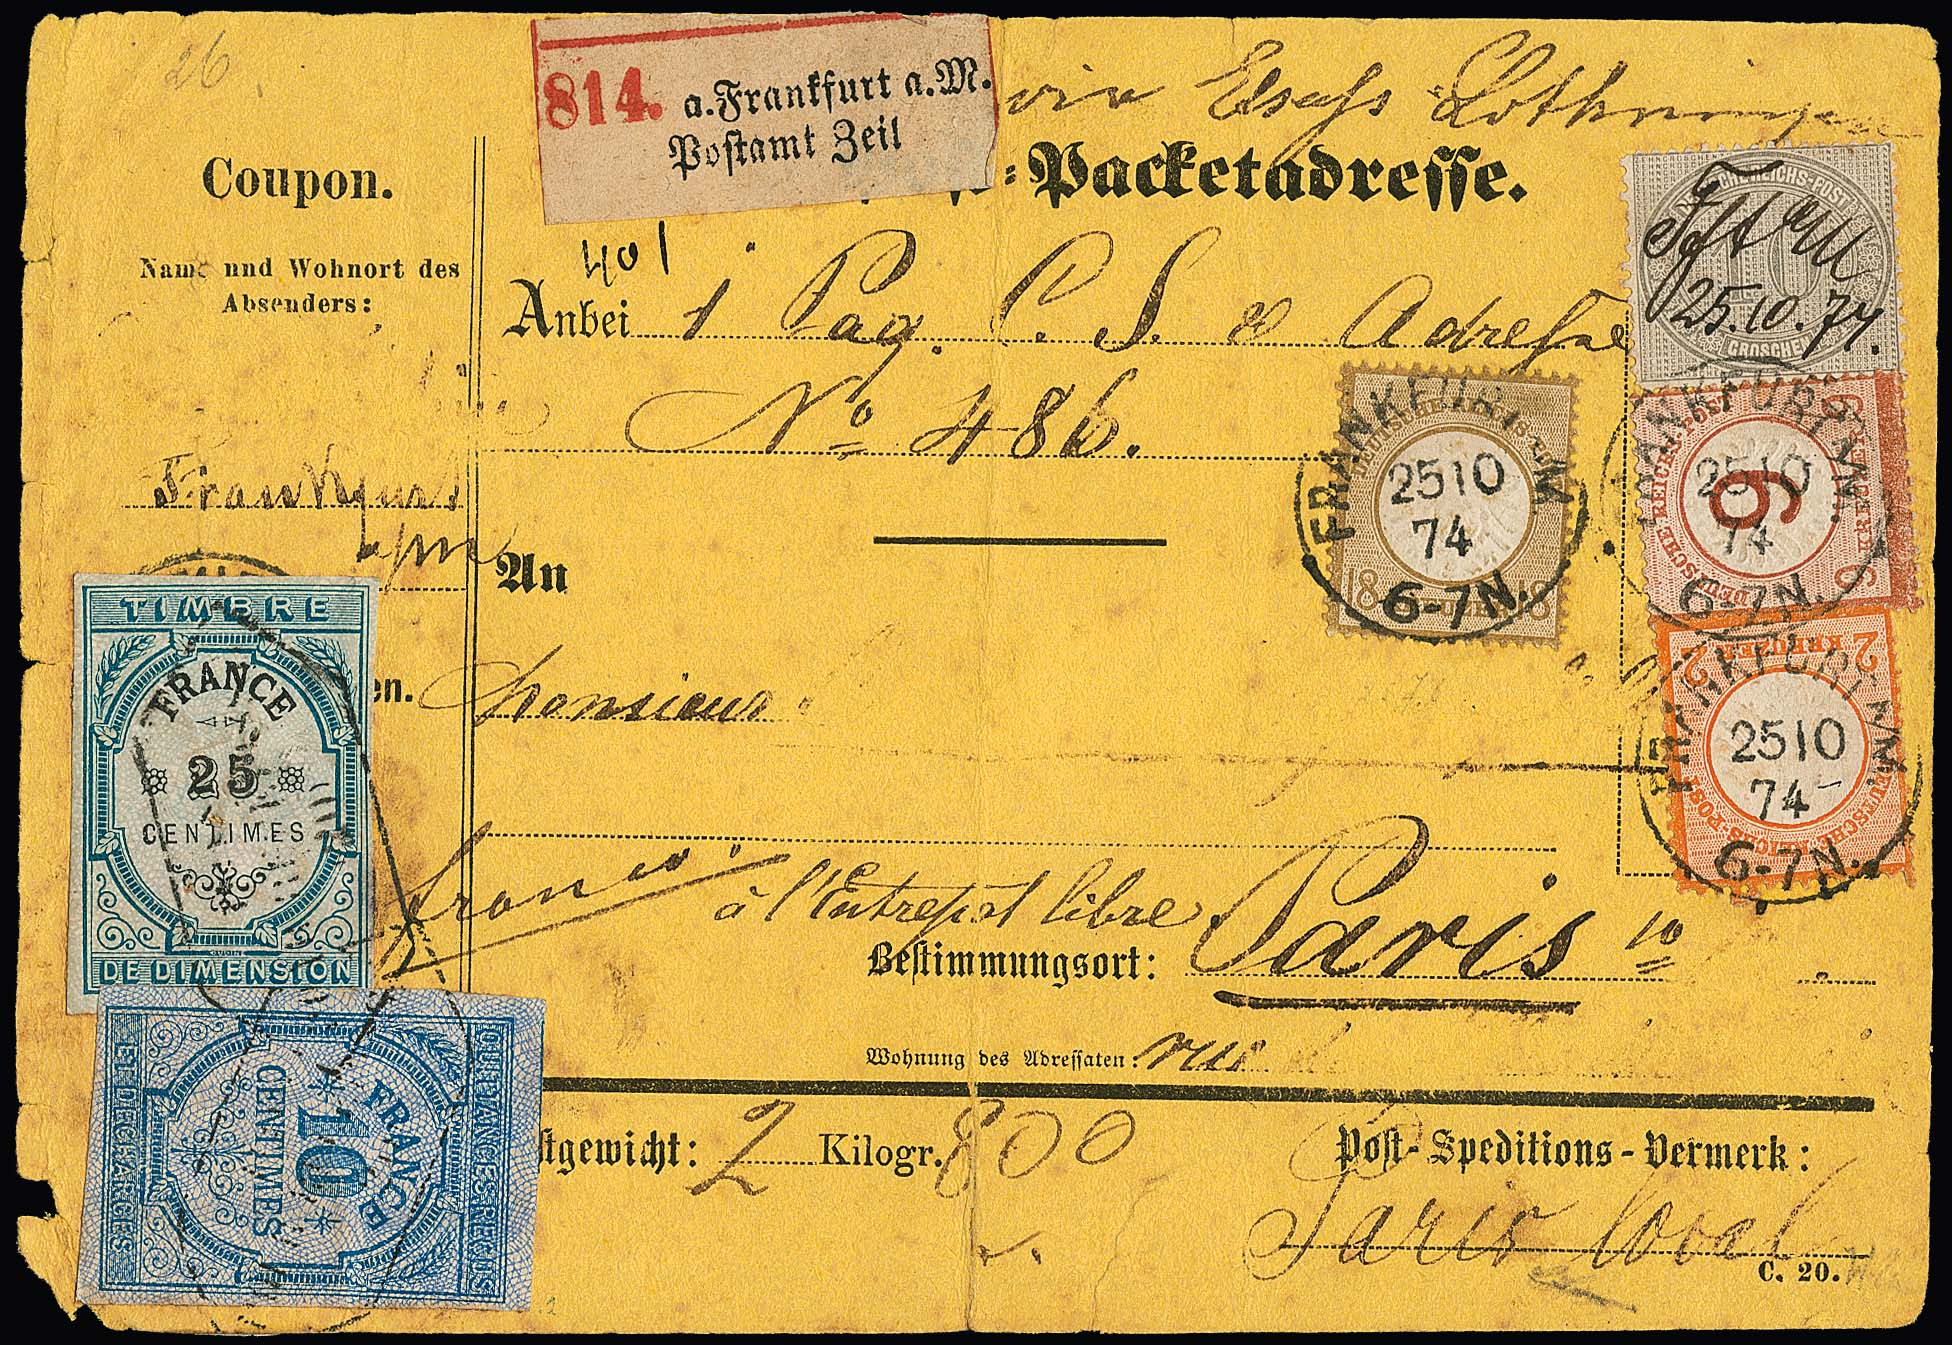 26.
814. a. Frankfurt a. M.
Postamt Zeil
via Elsass Lothringen
Coupon.
=Packetadresse.
Name und Wohnort des
Absenders:
401
Anbei 1 Paq. C. S. & Adresse
No 486.
Frankfurt
a/m
An
en.
Monsieur
franco
à l'Entrepot libre
Bestimmungsort: Paris
Wohnung des Adressaten: rue
stgewicht: 2 Kilogr. 800
Post-Speditions-Vermerk:
Paris local
C. 20.
REICHS-POST
10
GROSCHEN
25.10.74.
9
9 KREUZER 9
DEUTSCHE REICHS-POST
FRANKFURT A/M.
25 10
74
6-7N.
18 KREUZER 18
DEUTSCHE REICHS-POST
FRANKFURT A/M.
25 10
74
6-7N.
2 KREUZER 2
DEUTSCHE REICHS-POST
FRANKFURT A/M.
25 10
74
6-7N.
TIMBRE
FRANCE
25
CENTIMES
DE DIMENSION
QUITTANCES REÇUS
FRANCE
10
CENTIMES
ET DECHARGES